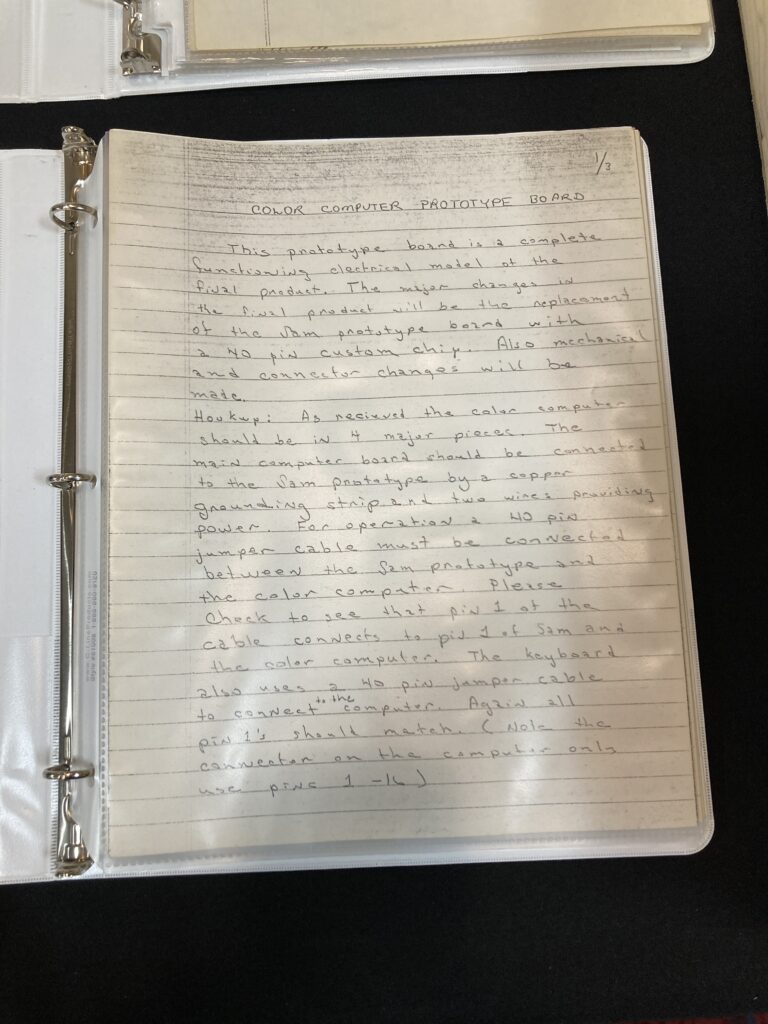 1/3
COLOR COMPUTER PROTOTYPE BOARD
This prototype board is a complete
functioning electrical model of the
final product. The major changes in
the final product will be the replacement
of the Sam prototype board with
a 40 pin custom chip. Also mechanical
and connector changes will be
made.
Hookup: As recieved the color computer
should be in 4 major pieces. The
main computer board should be connected
to the Sam prototype by a copper
grounding strip and two wires providing
power. For operation a 40 pin
jumper cable must be connected
between the Sam prototype and
the color computer. Please
Check to see that pin 1 of the
cable connects to pin 1 of Sam and
the color computer. The keyboard
also uses a 40 pin jumper cable
to connect to the computer. Again all
pin 1's should match. (Note the
connector on the computer only
use pins 1-16)